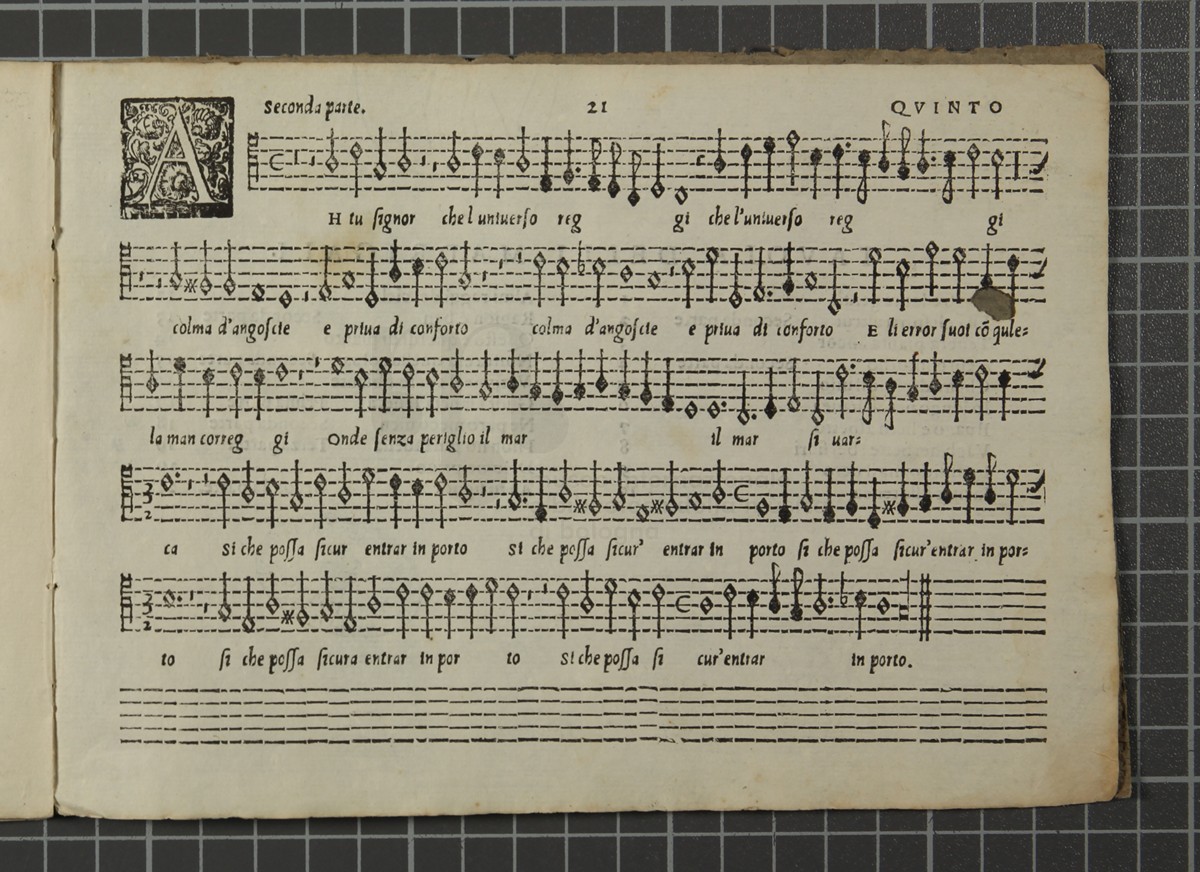 Seconda parte. 21 QVINTO
AH tu signor che l'uniuerso reg gi che l'uniuerso reg gi
colma d'angoscie e priua di conforto colma d'angoscie e priua di conforto E li error suoi cõ q̃ule=
la man correg gi Onde senza periglio il mar il mar si uar=
ca Si che possa sicur entrar in porto Si che possa sicur' entrar in porto si che possa sicur'entrar in por=
to si che possa sicura entrar in por to Si che possa si cur'entrar in porto.